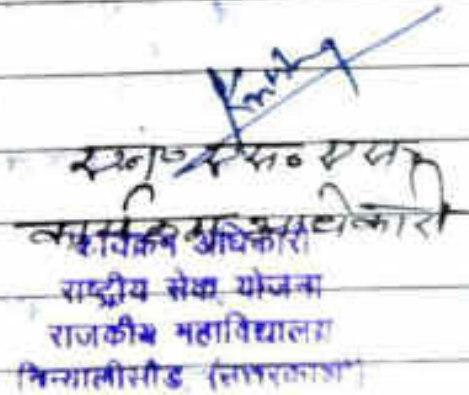 एन० एस० एस०
कार्यक्रम अधिकारी
कार्यक्रम अधिकारी
राष्ट्रीय सेवा योजना
राजकीय महाविद्यालय
चिन्यालीसौड़ (उत्तरकाशी)